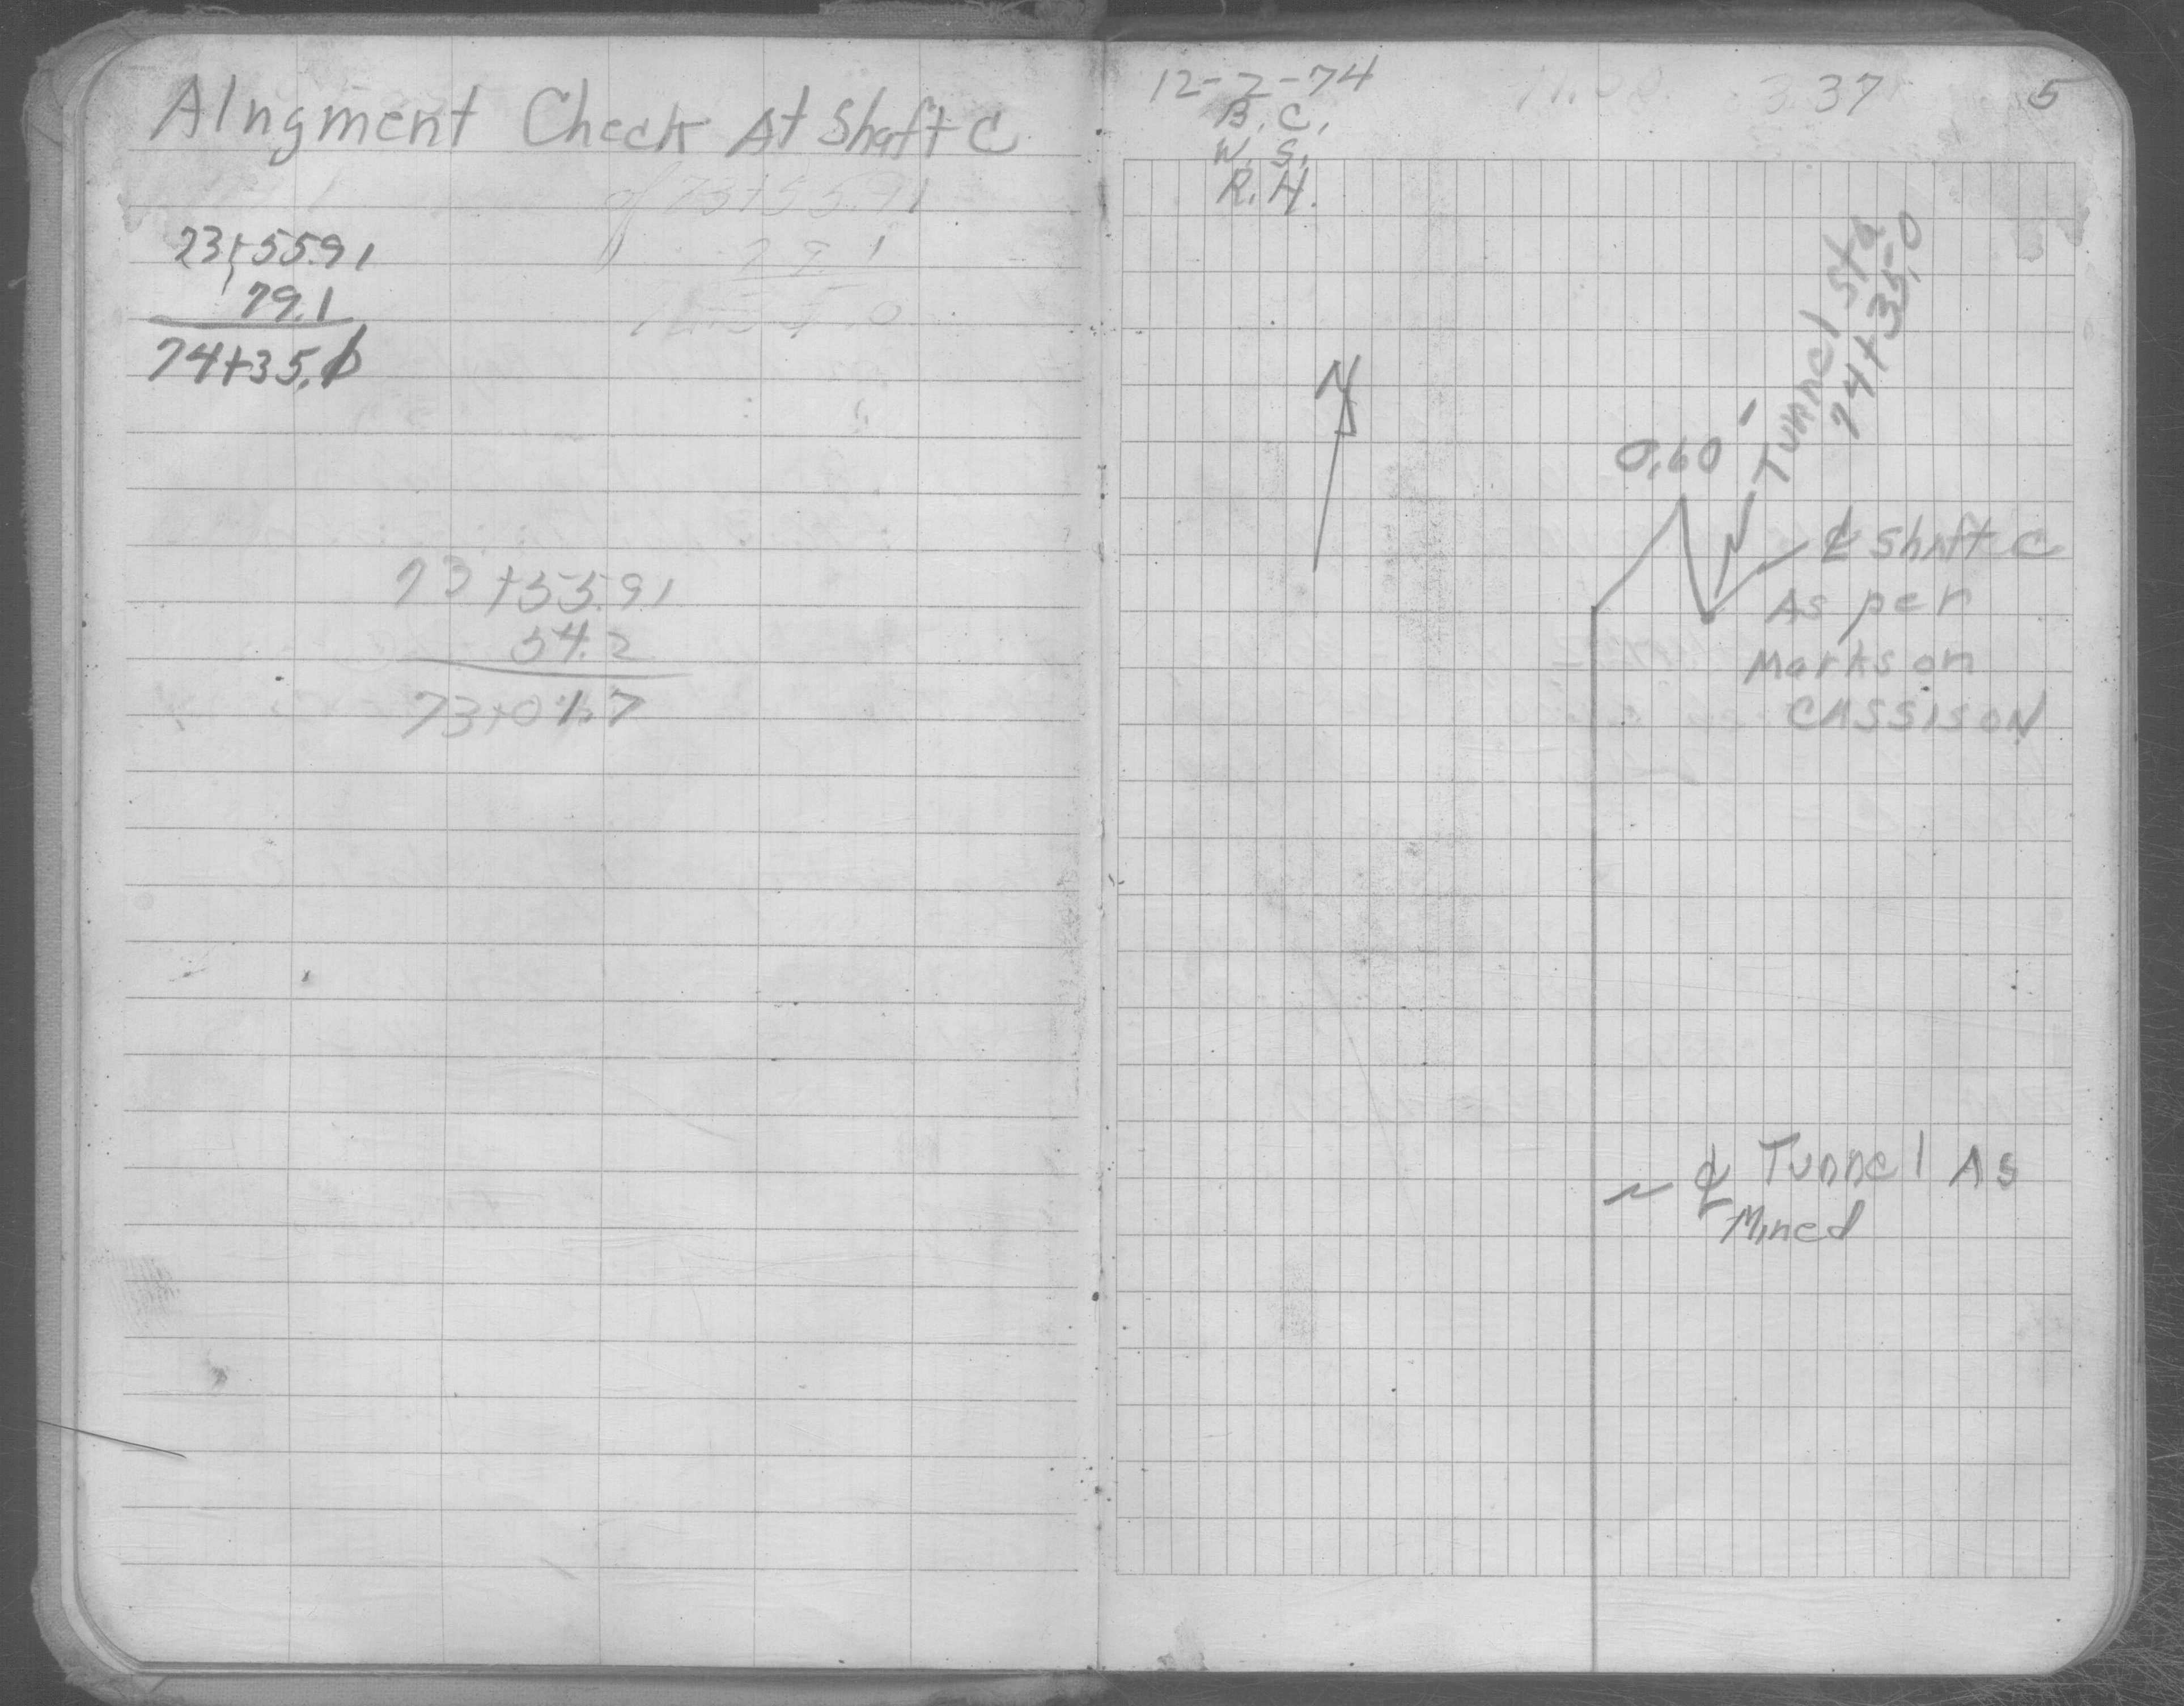 Alngment Check At Shaft C
of 73+55.91
79.1
73+55.91
79.1
74+35.0
73+55.91
54.2
73+01.7
12-2-74
3.37
5
B.C.
W.S.
R.H.
N
Tunnel Sta
74+35.0
0.60
℄ Shaft C
As per
Marks on
CASSISON
℄ Tunnel As
Mined